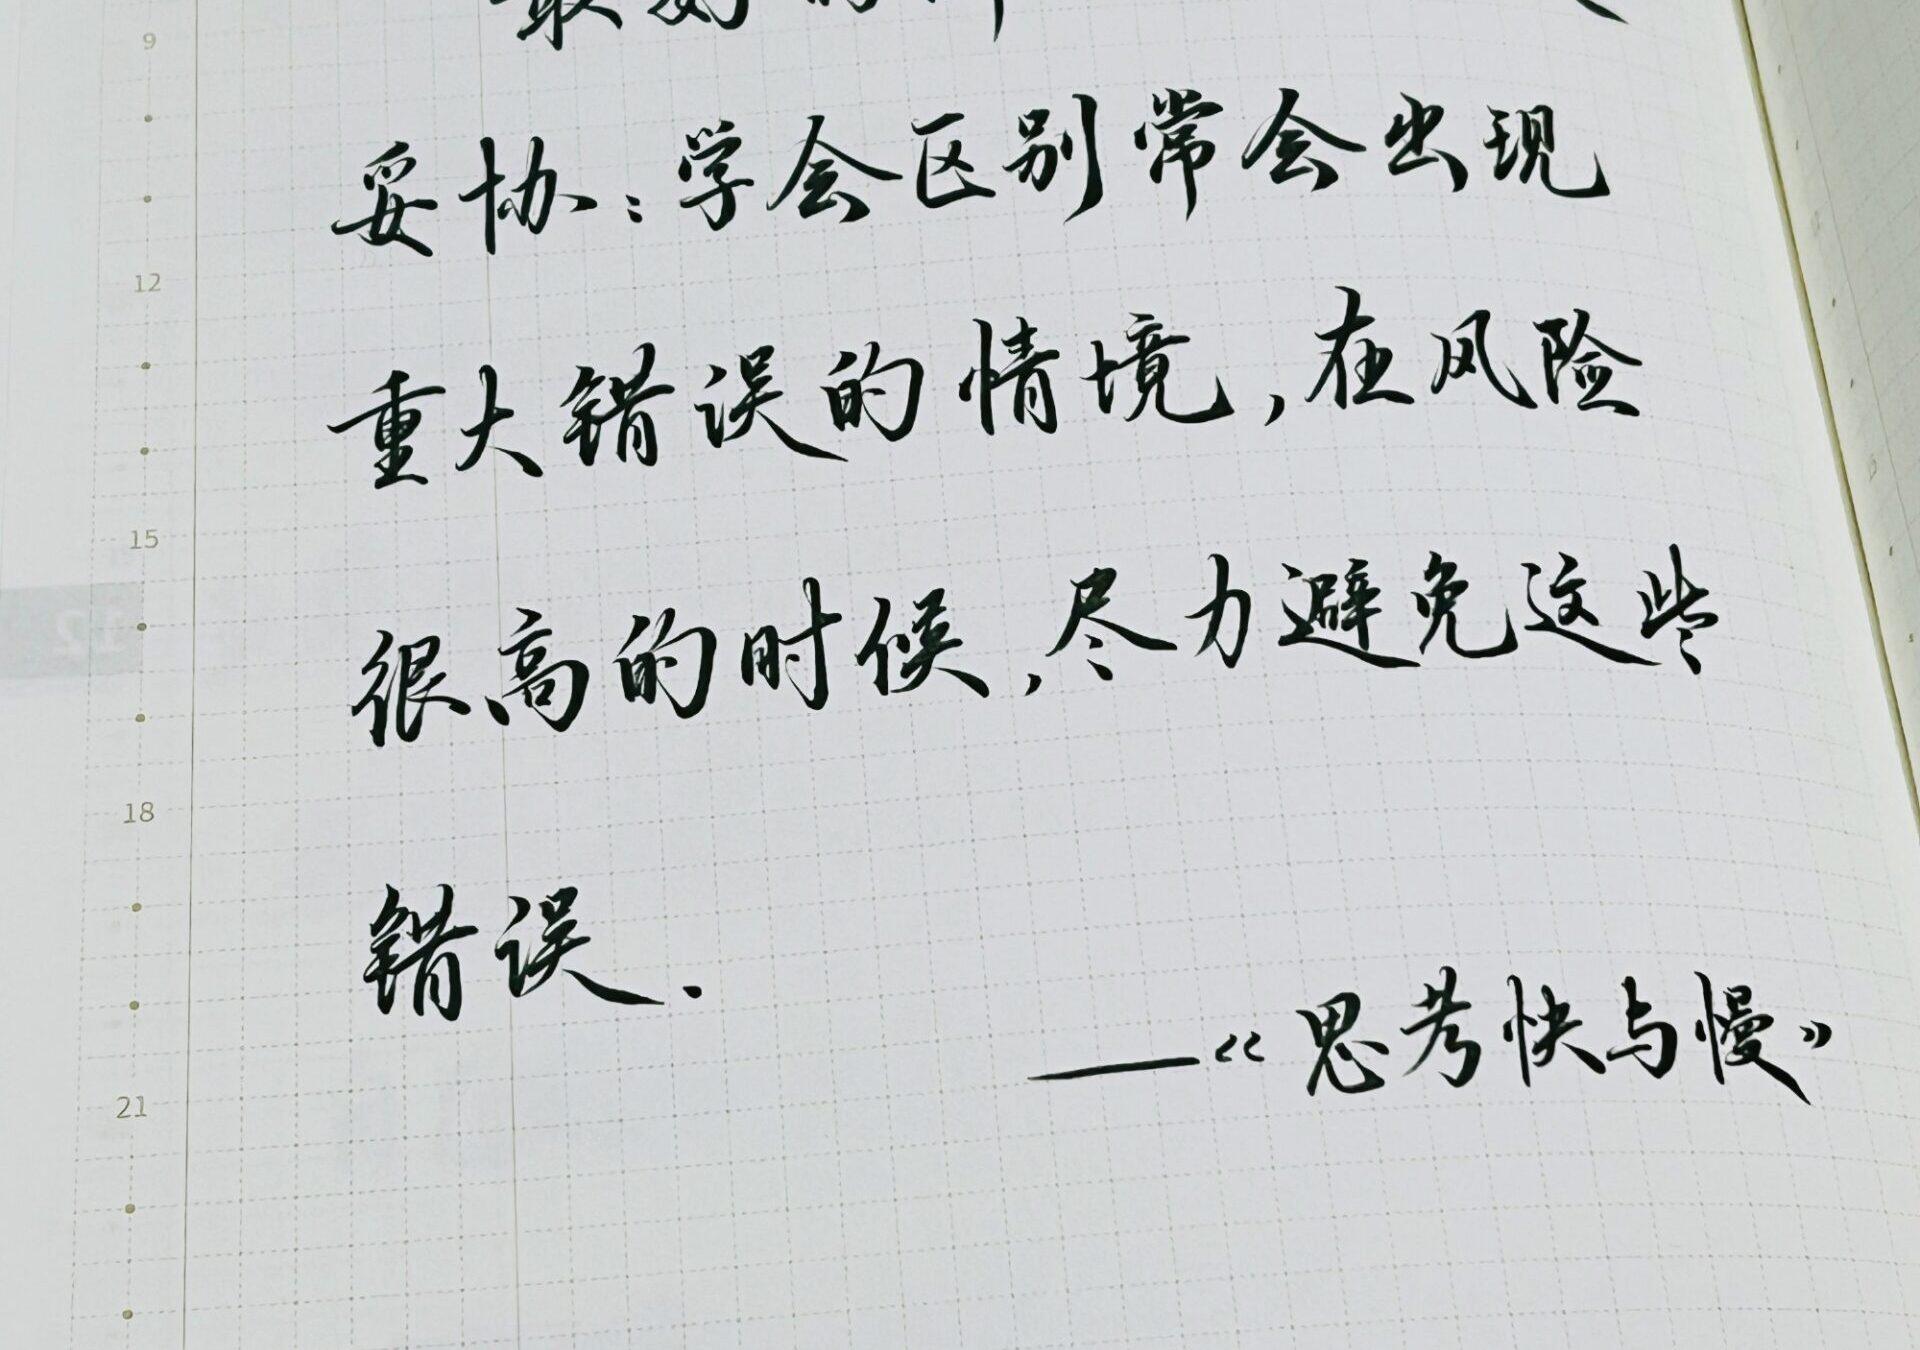 最好的
妥协：学会区别常会出现
重大错误的情境，在风险
很高的时候，尽力避免这些
错误.
——《思考快与慢》
9
12
15
18
21